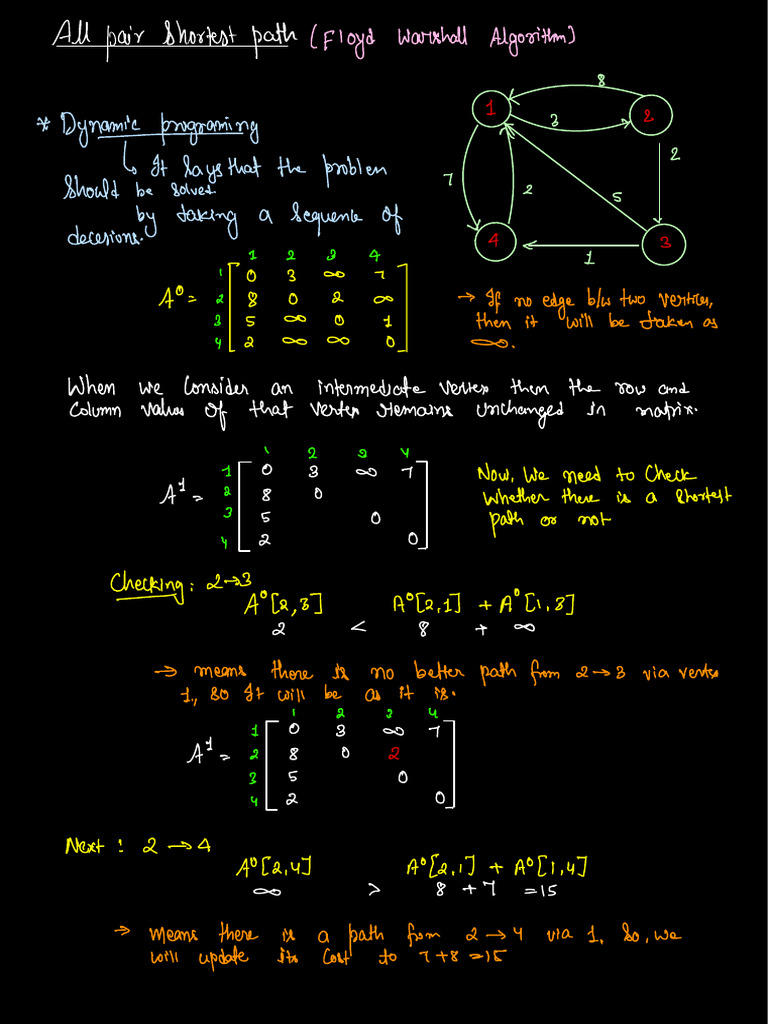 All pair Shortest path (Floyd Warshall Algorithm)
* Dynamic programing
↳ It Says that the problem
Should be solved
by taking a sequence of
decesions.
1 2 3 4
8 3 2 7 2 5 1
1 2 3 4
A⁰ =
1 0 3 ∞ 7
2 8 0 2 ∞
3 5 ∞ 0 1
4 2 ∞ ∞ 0
→ If no edge b/w two vertices,
then it will be taken as
∞.
When we Consider an intermediate vertex then the row and
Column values of that vertex remains unchanged in matrix.
1 2 3 4
A¹ =
1 0 3 ∞ 7
2 8 0
3 5 0
4 2 0
Now, We need to Check
whether there is a shortest
path or not
Checking: 2→3
A⁰[2,3] A⁰[2,1] + A⁰[1,3]
2 < 8 + ∞
→ means there is no better path from 2→3 via vertex
1, so It will be as it is.
1 2 3 4
A¹ =
1 0 3 ∞ 7
2 8 0 2
3 5 0
4 2 0
Next : 2 → 4
A⁰[2,4] A⁰[2,1] + A⁰[1,4]
∞ > 8 + 7 = 15
→ Means there is a path from 2→4 via 1. So, we
will update its Cost to 7+8=15